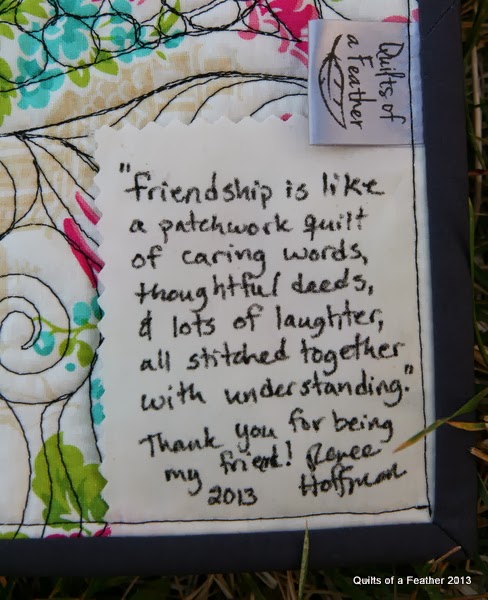 Quilts of
a Feather
"friendship is like
a patchwork quilt
of caring words,
thoughtful deeds,
& lots of laughter,
all stitched together
with understanding."
Thank you for being
my friend! Renee
2013 Hoffman
Quilts of a Feather 2013